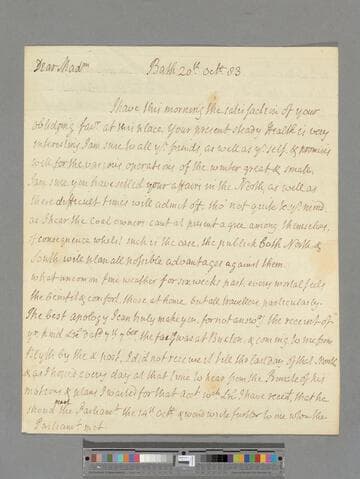 Dear Madm Bath 20th Octr 83
I have this morning the satisfaction of your
obligeing favr at this place. Your present steady Health is very
interesting I am sure to all yr friends as well as yr self, & promises
well for the various operations of the winter great & small.
I am sure you have settled your affairs in the North, as well as
these difficult times will admit of, tho' not quite to yr mind
as I hear the Coal owners cant at present agree among themselves,
& consequence whilst such is the case, the publick both North &
South will plan all possible advantages against them.
What uncommon fine weather for six weeks past, every mortal feels
the benefit & comfort, those at home, but all travellers particularly.
The best apology I can truly make you, for not answg the receipt of
yr kind Lr dated 9th 7ber the fact was at Buxton, & coming to me from
Blyth by the x post, I did not receive it till the last day of that Month
& as I hop'd every day at that time to hear from the Primate of his
motions & plans I waited for that acct wch Ltr I have recd, that he
shoud meet the Parliamt the 14th Octr & woud write further to me when the
Parliamt met